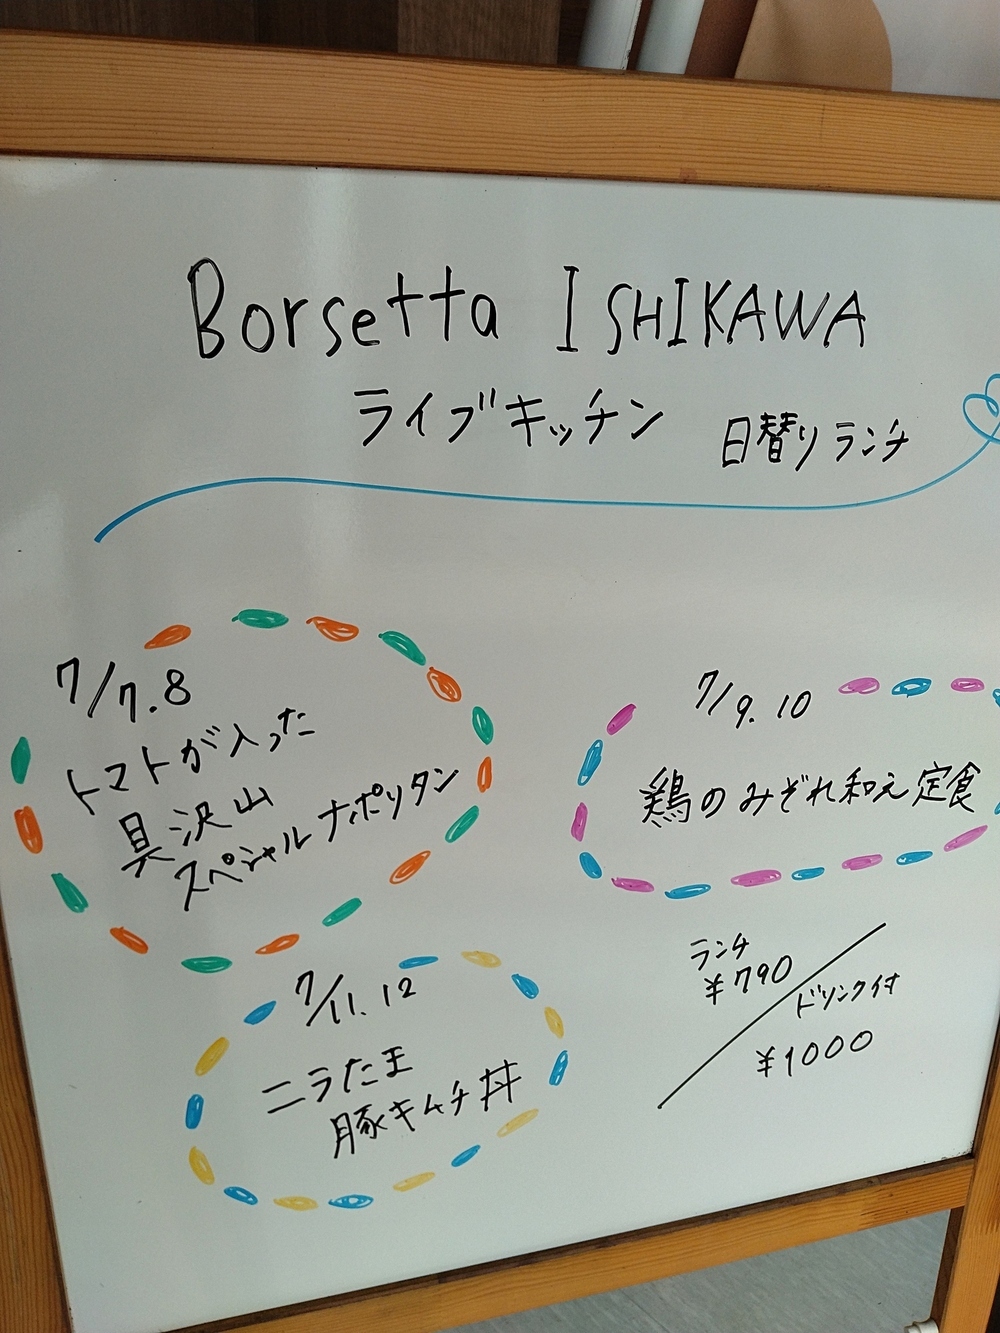 Borsetta ISHIKAWA
ライブキッチン 日替りランチ
7/7.8
トマトが入った
具沢山
スペシャルナポリタン
7/9.10
鶏のみぞれ和え定食
7/11.12
ニラたま
豚キムチ丼
ランチ
¥790
ドリンク付
¥1000